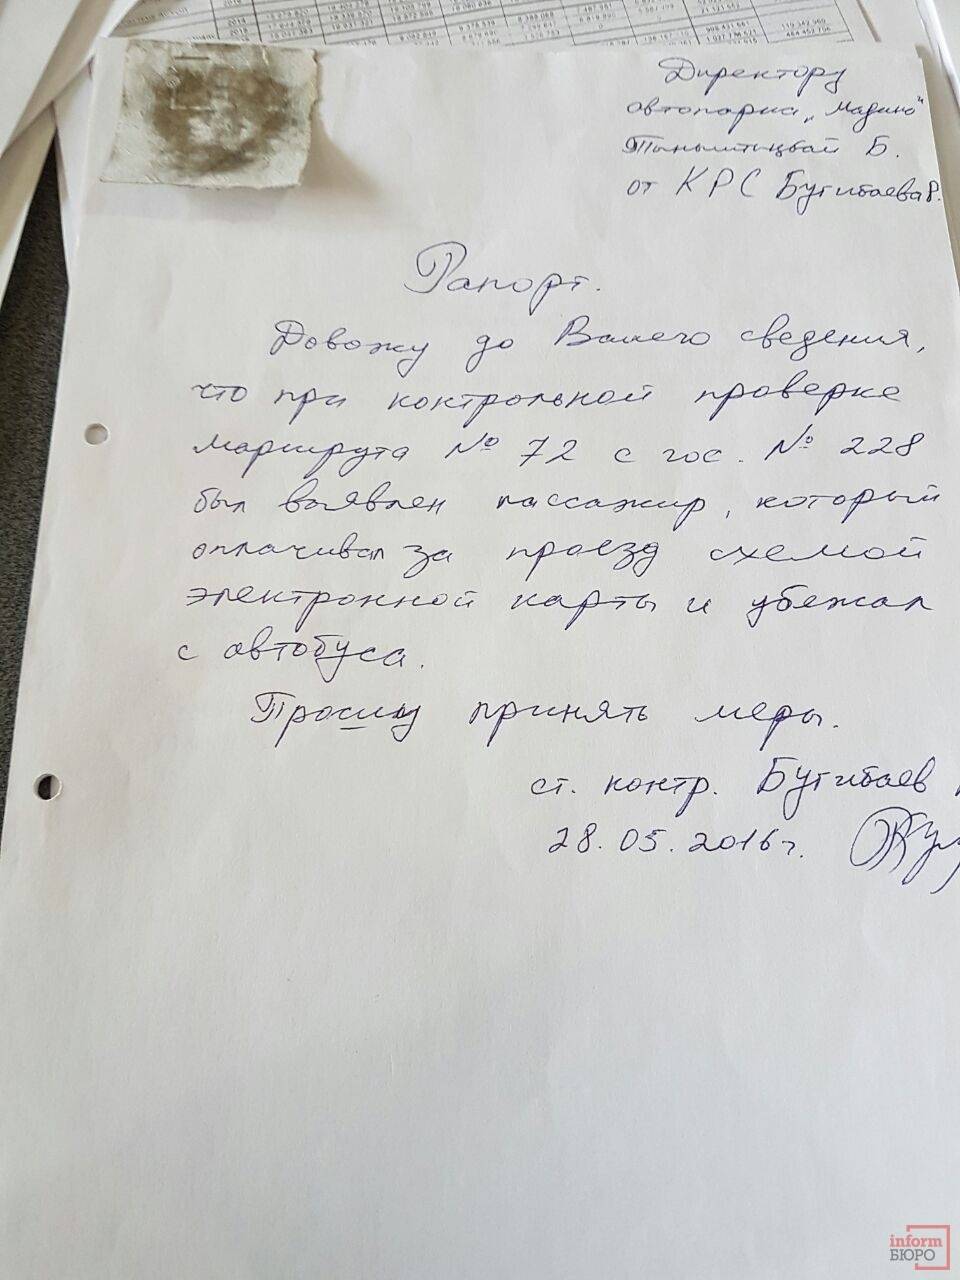 Директору
автопарка „Мадино"
Б.
от КРС Бугибаева
Рапорт.
Довожу до Вашего сведения,
что при контрольной проверке
маршрута № 72 с гос. № 228
был выявлен пассажир, который
оплачивал за проезд схемой
электронной карты и убежал
с автобуса.
Просишу принять меры.
ст. контр. Бугибаев
28.05.2016г.
inform
БЮРО